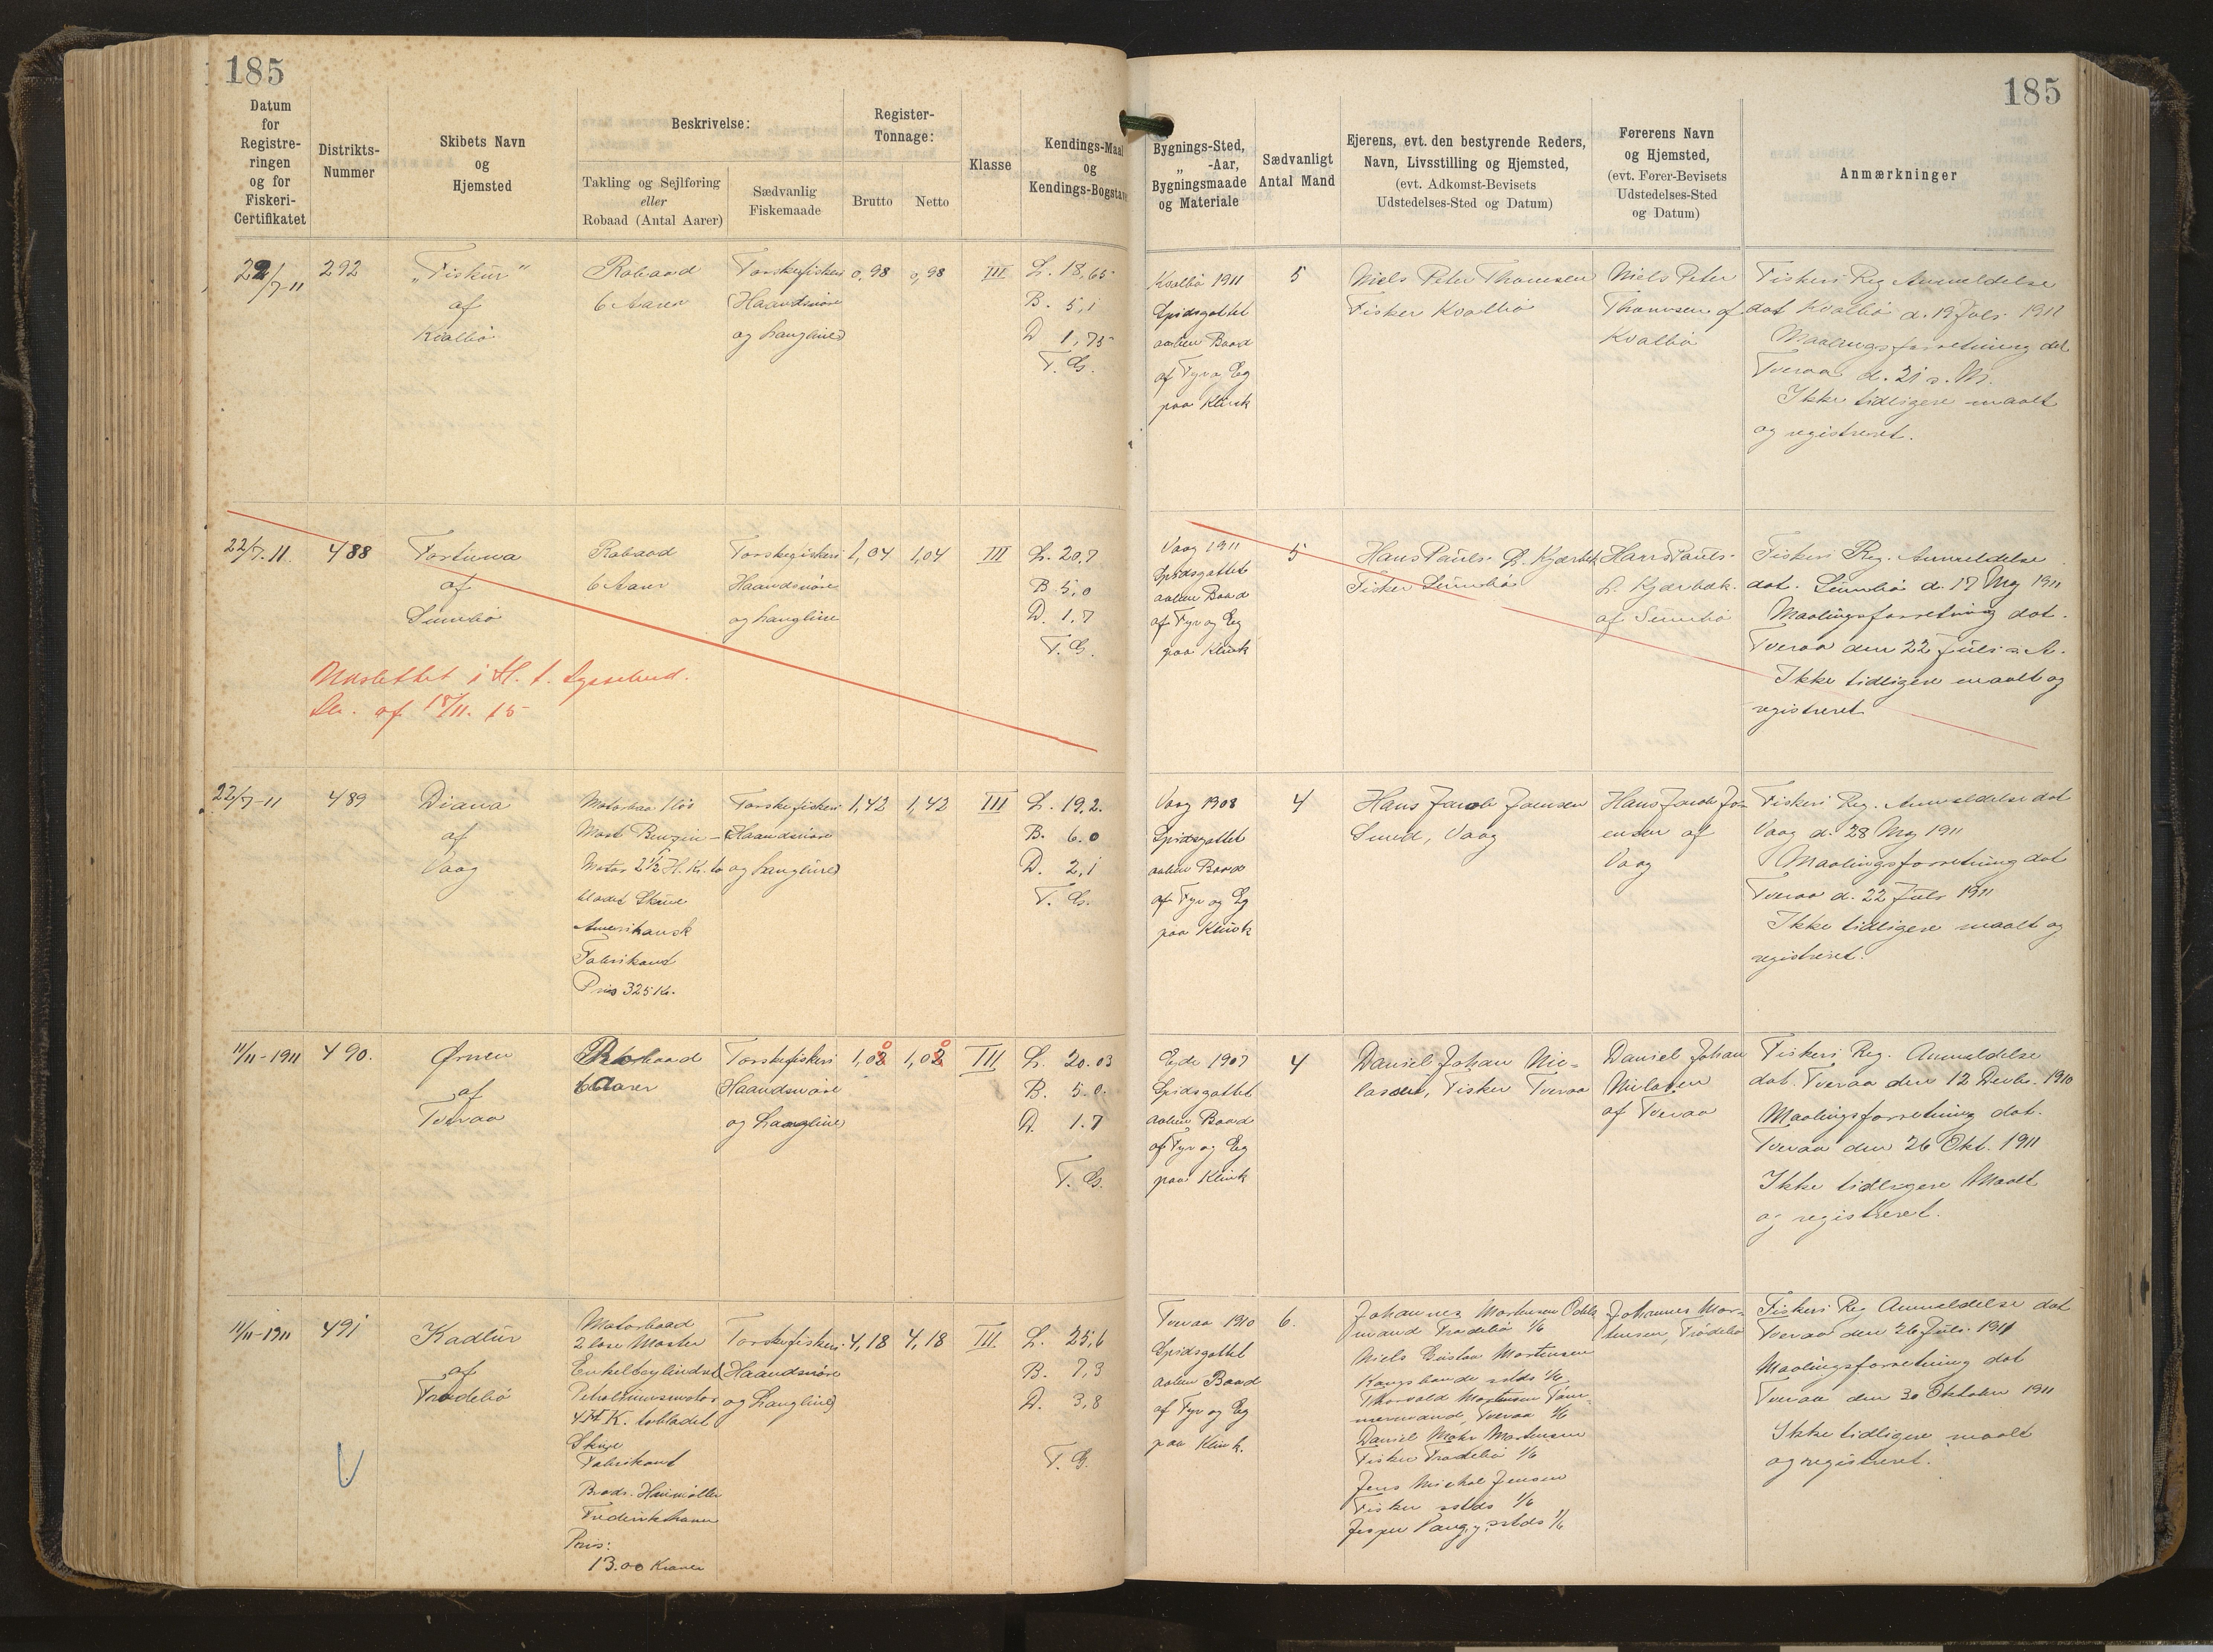 185
185
Datum
for
Registre-
ringen
og for
Fiskeri-
Certifikatet
Distrikts-
Nummer
Skibets Navn
og
Hjemsted
Beskrivelse:
Takling og Sejlføring
eller
Robaad (Antal Aarer)
Sædvanlig
Fiskemaade
Register-
Tonnage:
Brutto
Netto
Klasse
Kendings-Maal
og
Kendings-Bogstaver
Bygnings-Sted,
„ -Aar,
Bygningsmaade
og Materiale
Sædvanligt
Antal Mand
Ejerens, evt. den bestyrende Reders,
Navn, Livsstilling og Hjemsted,
(evt. Adkomst-Bevisets
Udstedelses-Sted og Datum)
Førerens Navn
og Hjemsted,
(evt. Fører-Bevisets
Udstedelses-Sted
og Datum)
Anmærkninger
22/7-11
292
„Fiskur"
af
Kvalbø
Robaad
6 Aarer
Torskefiskeri
(Haandsnøre
og Langline)
0,98
0,98
III
L. 18,65
B. 5,1
D 1,75
T. G.
Kvalbø 1911
Spidsgattet
aaben Baad
af Fyr og Eg
paa Klink
5
Niels Peter Thomsen
Fisker Kvalbø
Niels Peter
Thomsen af
Kvalbø
Fiskeri Reg Anmeldelse
dat Kvalbø d. 19 Juli 1911
Maalingsforretning dat
Tveraa d. 21 s. M.
Ikke tidligere maalt
og registreret.
22/7.11
488
Fortuna
af
Sumbø
Robaad
6 Aarer
Torskefiskeri
Haandsnøre
og Langline
1,04
1,04
III
L. 20,7
B 5,0
D. 1,7
T. G.
Vaag 1911
Spidsgattet
aaben Baad
af Fyr og Eg
paa Klink
5
Hans Pauls. L. Kjærbek
Fisker Sumbø
Hans Pauls.
L. Kjærbæk.
af Sumbø
Fiskeri Reg. Anmeldelse
dat. Sumbø d. 17 Maj 1911
Maalingsforretning dat.
Tveraa den 22 Juli s. A.
Ikke tidligere maalt og
registreret
Udslettet i H. t.
af 18/11. 15
22/7-11
489
Diana
af
Vaag
Mast Benzin-
Motor 2 1/2 H. K. to
bladet Skrue
Amerikansk
Fabrikant
Pris 325 Kr.
Torskefiskeri
(Haandsnøre
og Langline)
1,42
1,42
III
L. 19,2.
B. 6.0
D. 2,1
T. G.
Vaag 1908
Spidsgattet
aaben Baad
af Fyr og Eg
paa Klink
4
Hans Jacob Joensen
Smed, Vaag
Hans Jacob Jo-
ensen af
Vaag
Fiskeri Reg. Anmeldelse dat
Vaag d. 28 Maj 1911
Maalingsforretning dat
Tveraa d. 22 Juli 1911
Ikke tidligere maalt og
registreret.
11/11-1911
490.
Ørnen
af
Tveraa
Robaad
6 Aarer
Torskefiskeri
(Haandsnøre
og Langline)
1,02
1,02
III
L. 20.03
B. 5.0.
D. 1.7
T. G.
Eide 1907
Spidsgattet
aaben Baad
af Fyr og Eg
paa Klink
4
Daniel Johan Nic-
lasen, Fisker Tveraa
Daniel Johan
Niclasen
af Tveraa
Fiskeri Reg. Anmeldelse
dat. Tveraa den 12 Decbr. 1910
Maalingsforretning dat.
Tveraa den 26 Okt. 1911
Ikke tidligere Maalt
og registreret.
11/11-1911
491
Kadlur
af
Trødebø
Motorbaad
2 løse Master
Enkeltcylindret
Petroleumsmotor
4 H K. tobladet
Skrue
Fabrikant
Brødr. Houmøller
Frederikshavn
Pris:
13.00 Kroner
Torskefiskeri
(Haandsnøre
og Langline)
4,18
4,18
III
L. 25,6
B. 7,3
D. 3,8
T. G.
Tveraa 1910
Spidsgattet
aaben Baad
af Fyr og Eg
paa Klink.
6.
Johannes Mortensen Odels
mand Trødebø 1/6
Niels Gustav Mortensen
Kongsbonde sstds 1/6
Thorvald Mortensen Tøm-
mermand, Tveraa 1/6
Daniel Mohr Mortensen
Fisker Trødebø 1/6
Jens Michal Jensen
Fisker sstds 1/6
Jesper sstds 1/6
Johannes Mor-
tensen, Trødebø
Fiskeri Reg Anmeldelse dat
Tveraa den 26 Juli 1911
Maalingsforretning dat
Tveraa den 30 Oktober 1911
Ikke tidligere maalt
og registreret.